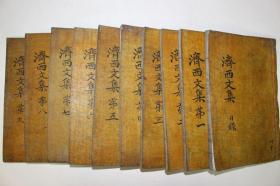 濟西文集 目錄
濟西文集 第一
濟西文集 第二
濟西文集 第三
濟西文集 第
濟西文集 第五
濟西文集 第六
濟西文集 第七
濟西文集 第八
濟西文集 第九